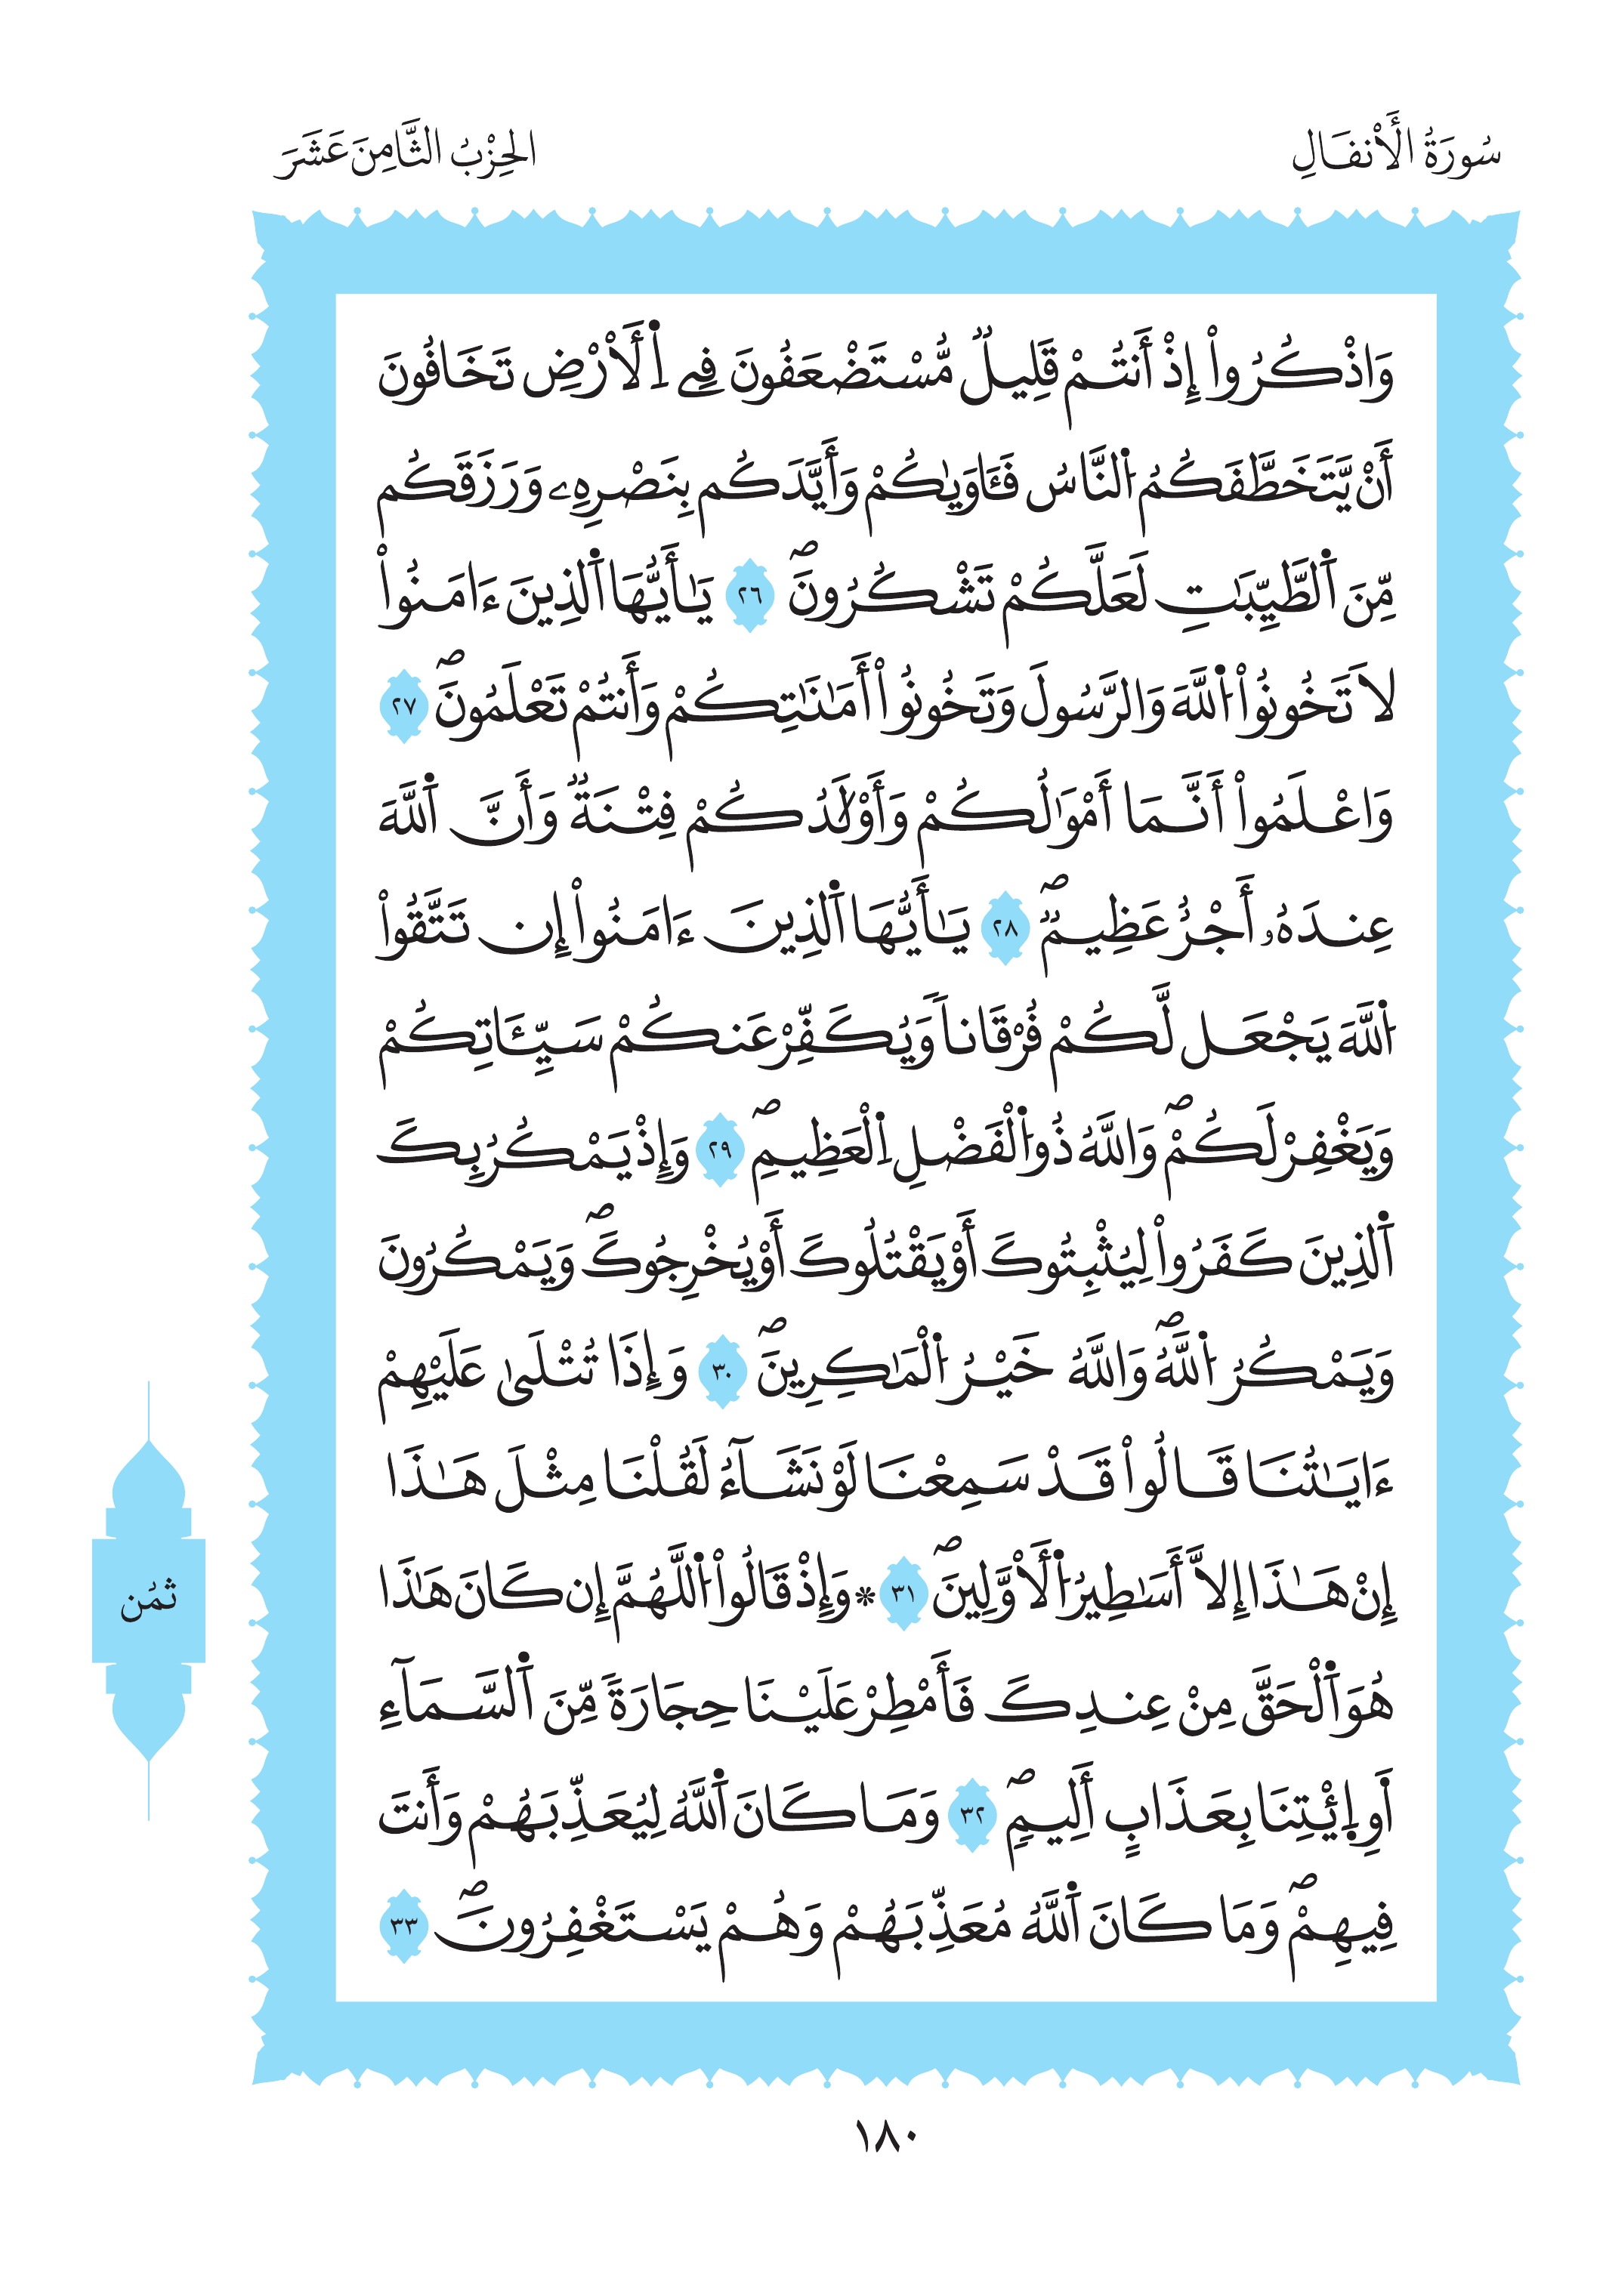 سُورَةُ الْأَنفَالِ
الحِزْبُ الثَّامِنَ عَشَرَ
وَاذْكُرُواْ إِذْ أَنتُمْ قَلِيلٌ مُّسْتَضْعَفُونَ فِے اِ۬لَارْضِ تَخَافُونَ
أَنْ يَّتَخَطَّفَكُمُ اُ۬لنَّاسُ فَـَٔاوٜيٰكُمْ وَأَيَّدَكُم بِنَصْرِهِۦ وَرَزَقَكُم
مِّنَ اَ۬لطَّيِّبَٰتِ لَعَلَّكُمْ تَشْكُرُونَۖ ٢٦ يَٰأَيُّهَا اَ۬لذِينَ ءَامَنُواْ
لَا تَخُونُواْ اُ۬للَّهَ وَالرَّسُولَ وَتَخُونُواْ أَمَٰنَٰتِكُمْ وَأَنتُمْ تَعْلَمُونَۖ ٢٧
وَاعْلَمُواْ أَنَّمَا أَمْوَٰلُكُمْ وَأَوْلَٰدُكُمْ فِتْنَةٌ وَأَنَّ اَ۬للَّهَ
عِندَهُۥ أَجْرٌ عَظِيمٌۖ ٢٨ يَٰأَيُّهَا اَ۬لذِينَ ءَامَنُواْ إِن تَتَّقُواْ
اُ۬للَّهَ يَجْعَل لَّكُمْ فُرْقَاناٗ وَيُكَفِّرْ عَنكُمْ سَيِّـَٔاتِكُمْ
وَيَغْفِرْ لَكُمْۖ وَاللَّهُ ذُو اُ۬لْفَضْلِ اِ۬لْعَظِيمِۖ ٢٩ وَإِذْ يَمْكُرُ بِكَ
اَ۬لذِينَ كَفَرُواْ لِيُثْبِتُوكَ أَوْ يَقْتُلُوكَ أَوْ يُخْرِجُوكَۖ وَيَمْكُرُونَ
وَيَمْكُرُ اُ۬للَّهُۖ وَاللَّهُ خَيْرُ اُ۬لْمَٰكِرِينَۖ ٣٠ وَإِذَا تُتْلَىٰ عَلَيْهِمْ
ءَايَٰتُنَا قَالُواْ قَدْ سَمِعْنَا لَوْ نَشَآءُ لَقُلْنَا مِثْلَ هَٰذَا
إِنْ هَٰذَا إِلَّا أَسَٰطِيرُ اُ۬لَاوَّلِينَۖ ٣١ * وَإِذْ قَالُواْ اُ۬للَّهُمَّ إِن كَانَ هَٰذَا
هُوَ اَ۬لْحَقَّ مِنْ عِندِكَ فَأَمْطِرْ عَلَيْنَا حِجَارَةٗ مِّنَ اَ۬لسَّمَآءِ
أَوِ اِ۪ئْتِنَا بِعَذَابٍ أَلِيمٖۖ ٣٢ وَمَا كَانَ اَ۬للَّهُ لِيُعَذِّبَهُمْ وَأَنتَ
فِيهِمْۖ وَمَا كَانَ اَ۬للَّهُ مُعَذِّبَهُمْ وَهُمْ يَسْتَغْفِرُونَۖ ٣٣
ثُمُن
١٨٠